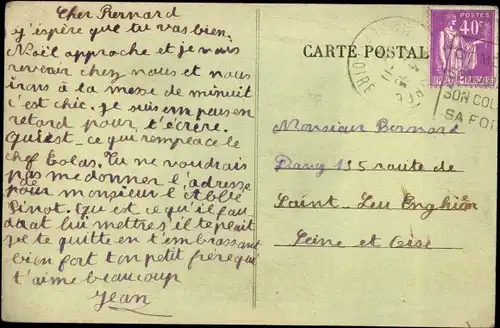 Cher Bernard
j'espère que tu vas bien.
Noël approche et je vais
revenir chez nous et nous
irons à la messe de minuit
c'est chic. Je suis un peu en
retard pour t'écrire.
Qu'est-ce qui remplace le
chef Colas. Tu ne voudrais
pas me donner l'adresse
pour monsieur l'abbé
Pinot. Qu'est ce qu'il fau
drait lui mettre s'il te plait
je te quitte en t'embrassant
bien fort ton petit frère qui
t'aime beaucoup
Jean
CARTE POSTALE
POSTES
40c
LOIRE
SON COL
SA FOR
Monsieur Bernard
135 route de
Saint-Leu Enghien
Seine et Oise